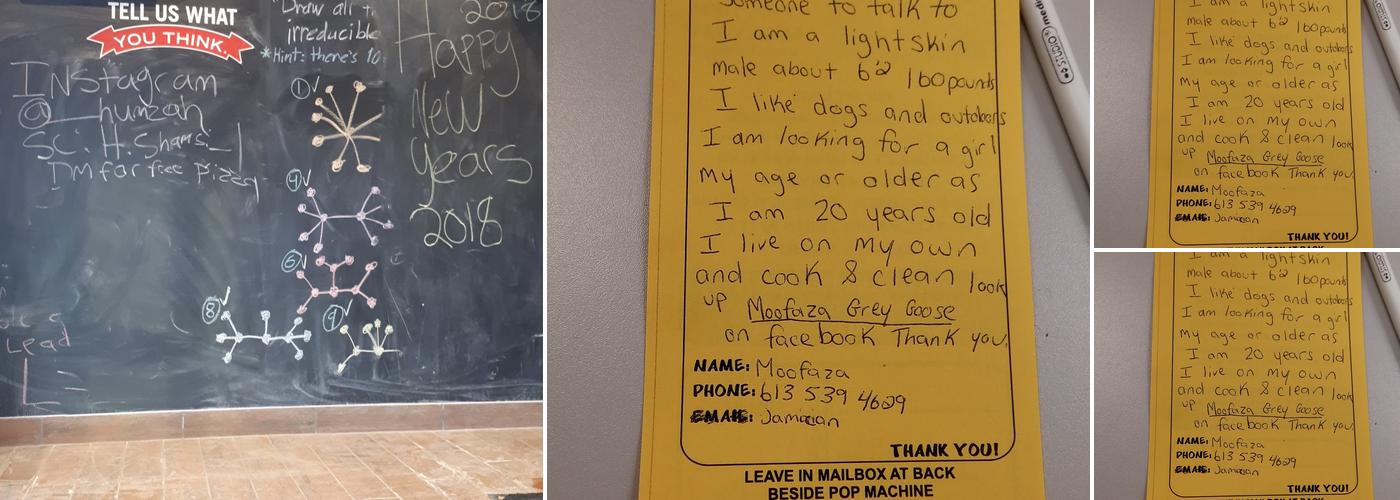 TELL US WHAT
YOU THINK.
INStagram
@__humzah
SC: H.Shams_1
DM for free pizza
"Draw all
irreducible
*Hint: there's 10
2018
Happy
New
Years
2018
1
4
6
8
9
Lead
Someone to talk to
I am a lightskin
male about 6'2 160pounds
I like dogs and outdoors
I am looking for a girl
my age or older as
I am 20 years old
I live on my own
and cook & clean look
up Moofaza Grey Goose
on facebook Thank you.
NAME: Moofaza
PHONE: 613 539 4629
EMAIL: Jamaican
THANK YOU!
LEAVE IN MAILBOX AT BACK
BESIDE POP MACHINE
STUDIO
I am a lightskin
male about 6'2 160pounds
I like dogs and outdoors
I am looking for a girl
my age or older as
I am 20 years old
I live on my own
and cook & clean look
up Moofaza Grey Goose
on facebook Thank you.
NAME: Moofaza
PHONE: 613 539 4629
EMAIL: Jamaican
THANK YOU!
I am a lightskin
male about 6'2 160pounds
I like dogs and outdoors
I am looking for a girl
my age or older as
I am 20 years old
I live on my own
and cook & clean look
up Moofaza Grey Goose
on facebook Thank you.
NAME: Moofaza
PHONE: 613 539 4629
EMAIL: Jamaican
THANK YOU!